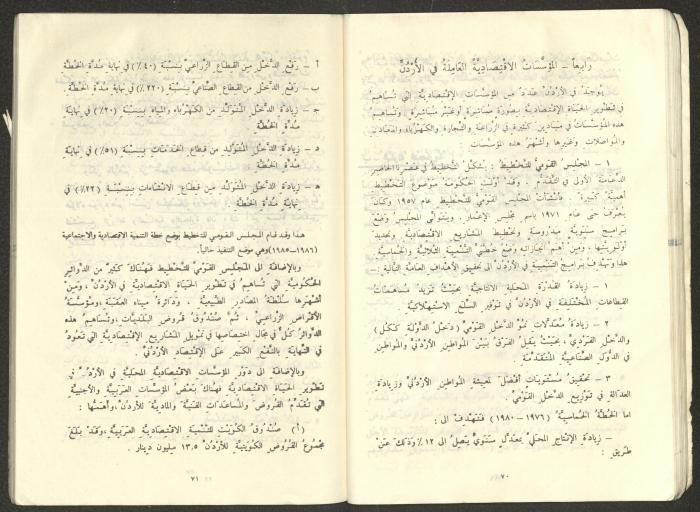 رابعاً - المؤسسات الاقتصادية العاملة في الأردن
يوجد في الأردن عدد من المؤسسات الاقتصادية التي تساهم
في تطوير الحياة الاقتصادية بصورة مباشرة وغير مباشرة، وتساهم
هذه المؤسسات في ميادين كثيرة في الزراعة والتجارة والكهرباء والمعادن
والمواصلات وغيرها وأشهر هذه المؤسسات
١ - المجلس القومي للتخطيط: يشكل التخطيط في عصرنا الحاضر
الدعامة الأولى في التقدم. وقد أولت الحكومة موضوع التخطيط
أهمية كبيرة. فأنشأت المجلس القومي للتخطيط عام ١٩٥٧ وكان
يعرف حتى عام ١٩٧١ باسم مجلس الإعمار. ويتولى المجلس وضع
برامج سنوية مدروسة وتخطيط المشاريع الاقتصادية وتحديد
أولويتها. ومن أهم انجازاته وضع خطتي التنمية الثلاثية والخماسية.
هذا وتهدف برامج التنمية في الأردن الى تحقيق الأهداف العامة التالية:
١ - زيادة القدرة المحلية الانتاجية بحيث تزيد مساهمات
القطاعات المختلفة في الأردن في توفير السلع الاستهلاكية.
٢ - زيادة معدلات نمو الدخل القومي (دخل الدولة ككل)
والدخل الفردي، بحيث يقل الفرق بين المواطن الأردني والمواطن
في الدول الصناعية المتقدمة.
٣ - تحقيق مستويات أفضل لمعيشة المواطن الأردني وزيادة
العدالة في توزيع الدخل القومي.
اما الخطة الخماسية (١٩٧٦ - ١٩٨٠) فتهدف الى:
- زيادة الإنتاج المحلي بمعدل سنوي يصل الى ١٢٪ وذلك عن
طريق:
٧٠
أ - رفع الدخل من القطاع الزراعي بنسبة (٤٠٪) في نهاية مدة الخطة
ب - رفع الدخل من القطاع الصناعي بنسبة (٢٢٠٪) في نهاية مدة الخطة.
جـ - زيادة الدخل المتولد من الكهرباء والمياه بنسبة (٢٠٪) في نهاية
مدة الخطة
د - زيادة الدخل المتولد من قطاع الخدمات بنسبة (٥١٪) في نهاية
مدة الخطة
هـ - زيادة الدخل المتولد من قطاع الانشاءات بنسبة (٢٢٪) في
نهاية مدة الخطة.
هذا وقد قام المجلس القومي للتخطيط بوضع خطة التنمية الاقتصادية والاجتماعية
(١٩٨٦-١٩٨٥) وهي موضع التنفيذ حالياً.
وبالإضافة الى المجلس القومي للتخطيط فهناك كثير من الدوائر
الحكومية التي تساهم في تطوير الحياة الاقتصادية في الأردن، ومن
أشهرها سلطة المصادر الطبيعية، ودائرة ميناء العقبة، ومؤسسة
الاقراض الزراعي، ثم صندوق قروض البلديات، وتساهم هذه
الدوائر كل في مجال اختصاصها في تمويل المشاريع الإقتصادية التي تعود
في النهاية بالنفع الكبير على الإقتصاد الأردني.
وبالإضافة الى دور المؤسسات الاقتصادية المحلية في الأردن في
تطوير الحياة الاقتصادية فهناك بعض المؤسسات العربية والأجنبية
التي تقدم القروض والمساعدات الفنية والمادية للأردن، وأهمها:
(أ) صندوق الكويت للتنمية الاقتصادية العربية، وقد بلغ
مجموع القروض الكويتية للأردن ١٣,٥ مليون دينار.
٧١